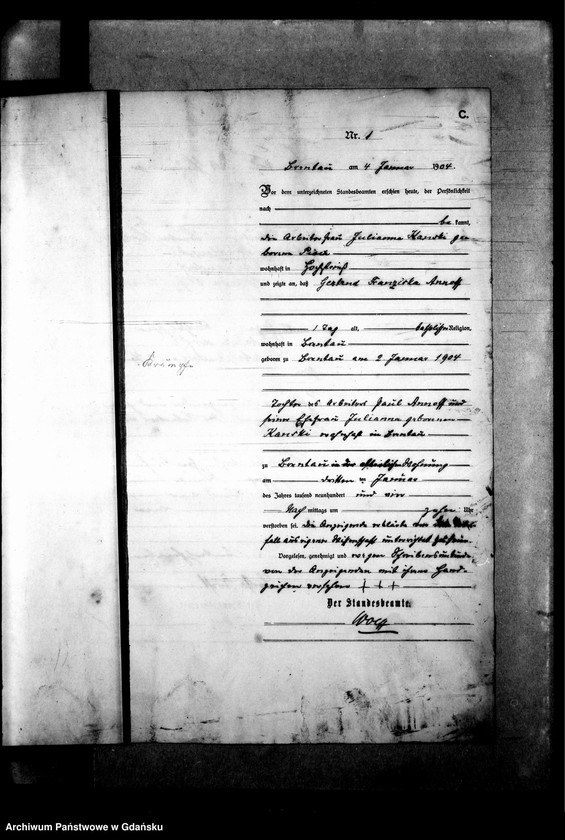 C.
Nr. 1
Brentau am 4 Januar 1904.
Vor dem unterzeichneten Standesbeamten erschien heute, der Persönlichkeit
nach
be kannt,
die Arbeiterfrau Julianna Kanski ge-
borene
wohnhaft in Hochstrieß
und zeigte an, daß Gertrud Franziska Annoff
1 Tag alt, katholischer Religion,
wohnhaft in Brentau
geboren zu Brentau am 2 Januar 1904
Krämpfe
Tochter des Arbeiters Paul Annoff und
seiner Ehefrau Julianna geborenen
Kanski wohnhaft in Brentau
zu Brentau in der elterlichen Wohnung
am dritten Januar
des Jahres tausend neunhundert und vier
Nach mittags um zehn Uhr
verstorben sei. Die Anzeigende erklärte von dem Sterbe-
fall aus eigener Wissenschaft unterrichtet zu sein.
Vorgelesen, genehmigt und wegen Schreibensunkunde
von der Anzeigenden mit ihrem Hand-
zeichen versehen + + +
Der Standesbeamte.
Archiwum Państwowe w Gdańsku